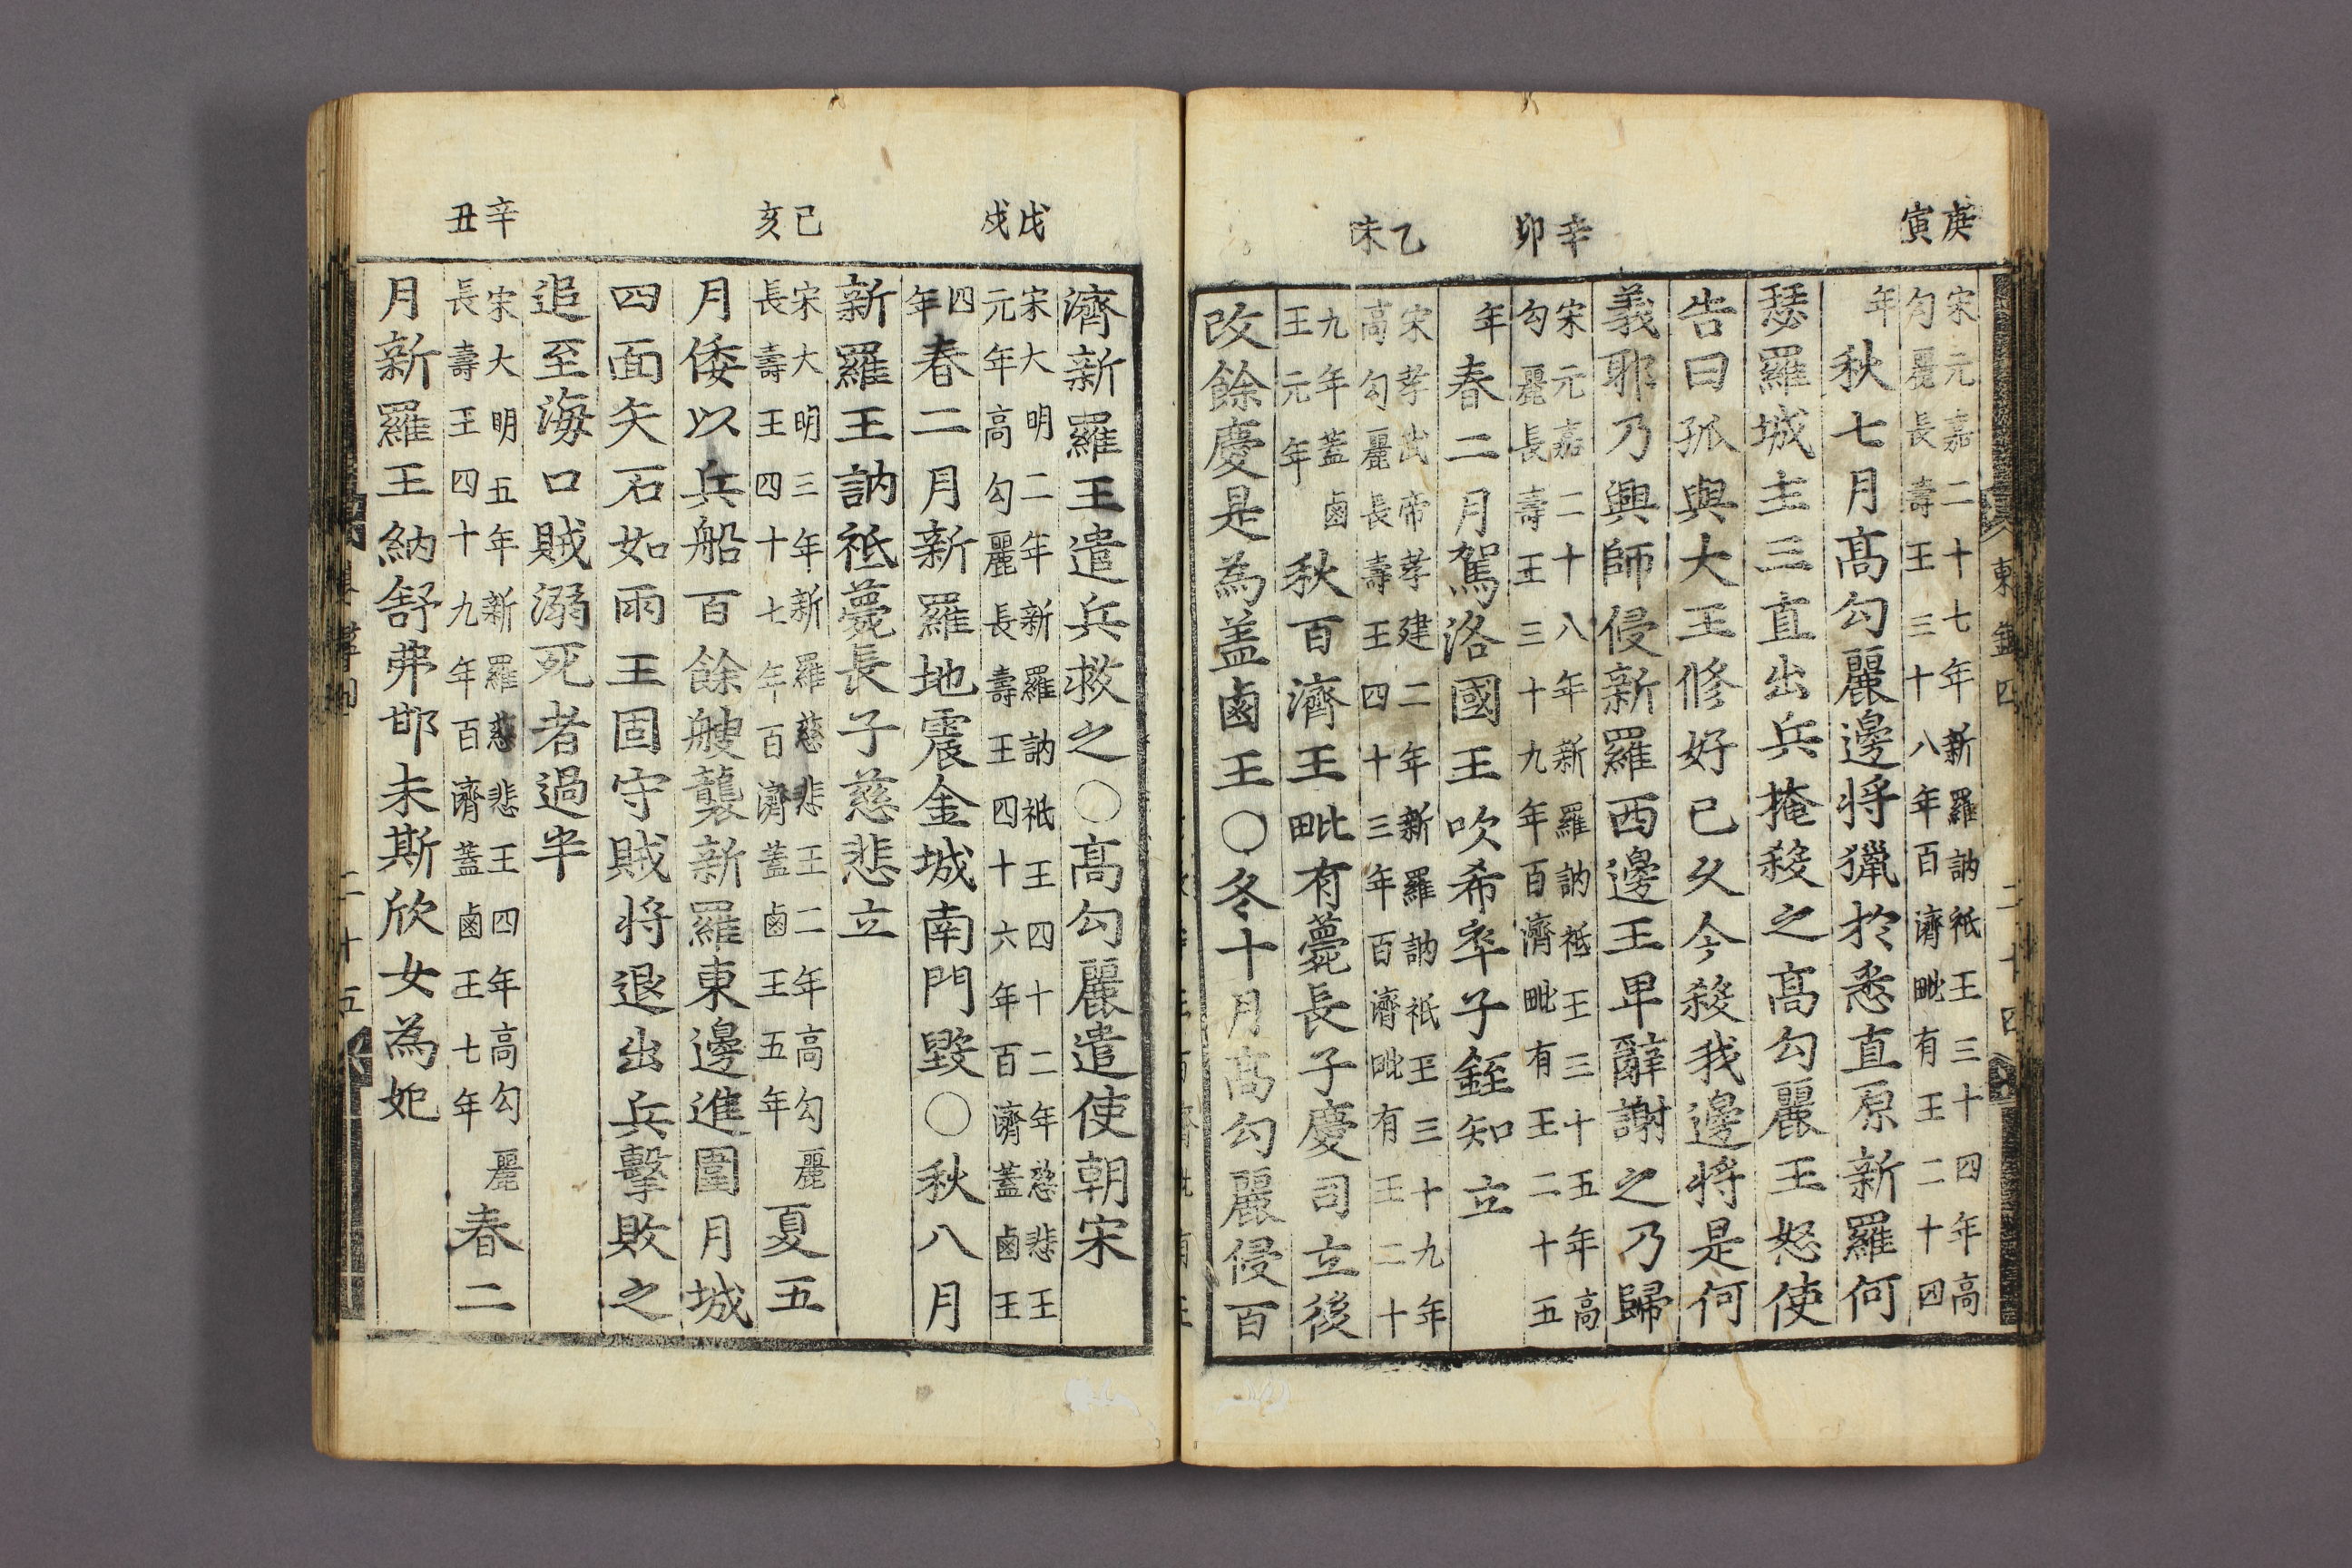 庚寅
宋元嘉二十七年新羅訥祇王三十四年高
勾麗長壽王三十八年百濟毗有王二十四
年秋七月高勾麗邊將獵於悉直原新羅何
瑟羅城主三直出兵掩殺之高勾麗王怒使
告曰孤與大王修好已久今殺我邊將是何
義耶乃興師侵新羅西邊王卑辭謝之乃歸
辛卯
宋元嘉二十八年新羅訥祗王三十五年高
勾麗長壽王三十九年百濟毗有王二十五
年春二月駕洛國王吹希卒子銍知立
乙未
宋孝武帝孝建二年新羅訥祇王三十九年
高勾麗長壽王四十三年百濟毗有王二十
九年蓋鹵
王元年
秋百濟王毗有薨長子慶司立後
改餘慶是為盖鹵王○冬十月高勾麗侵百
東 四
二十四
濟新羅王遣兵救之○高勾麗遣使朝宋
戊戌
宋大明二年新羅訥祗王四十二年慈悲王
元年高勾麗長壽王四十六年百濟蓋鹵王
四年春二月新羅地震金城南門毀○秋八月
新羅王訥祗薨長子慈悲立
己亥
宋大明三年新羅慈悲王二年高勾麗
長壽王四十七年百濟蓋鹵王五年
夏五
月倭以兵船百餘艘襲新羅東邊進圍月城
四面矢石如雨王固守賊將退出兵擊敗之
追至海口賊溺死者過半
辛丑
宋大明五年新羅慈悲王四年高勾麗
長壽王四十九年百濟蓋鹵王七年
春二
月新羅王納舒弗邯未斯欣女為妃
二十五